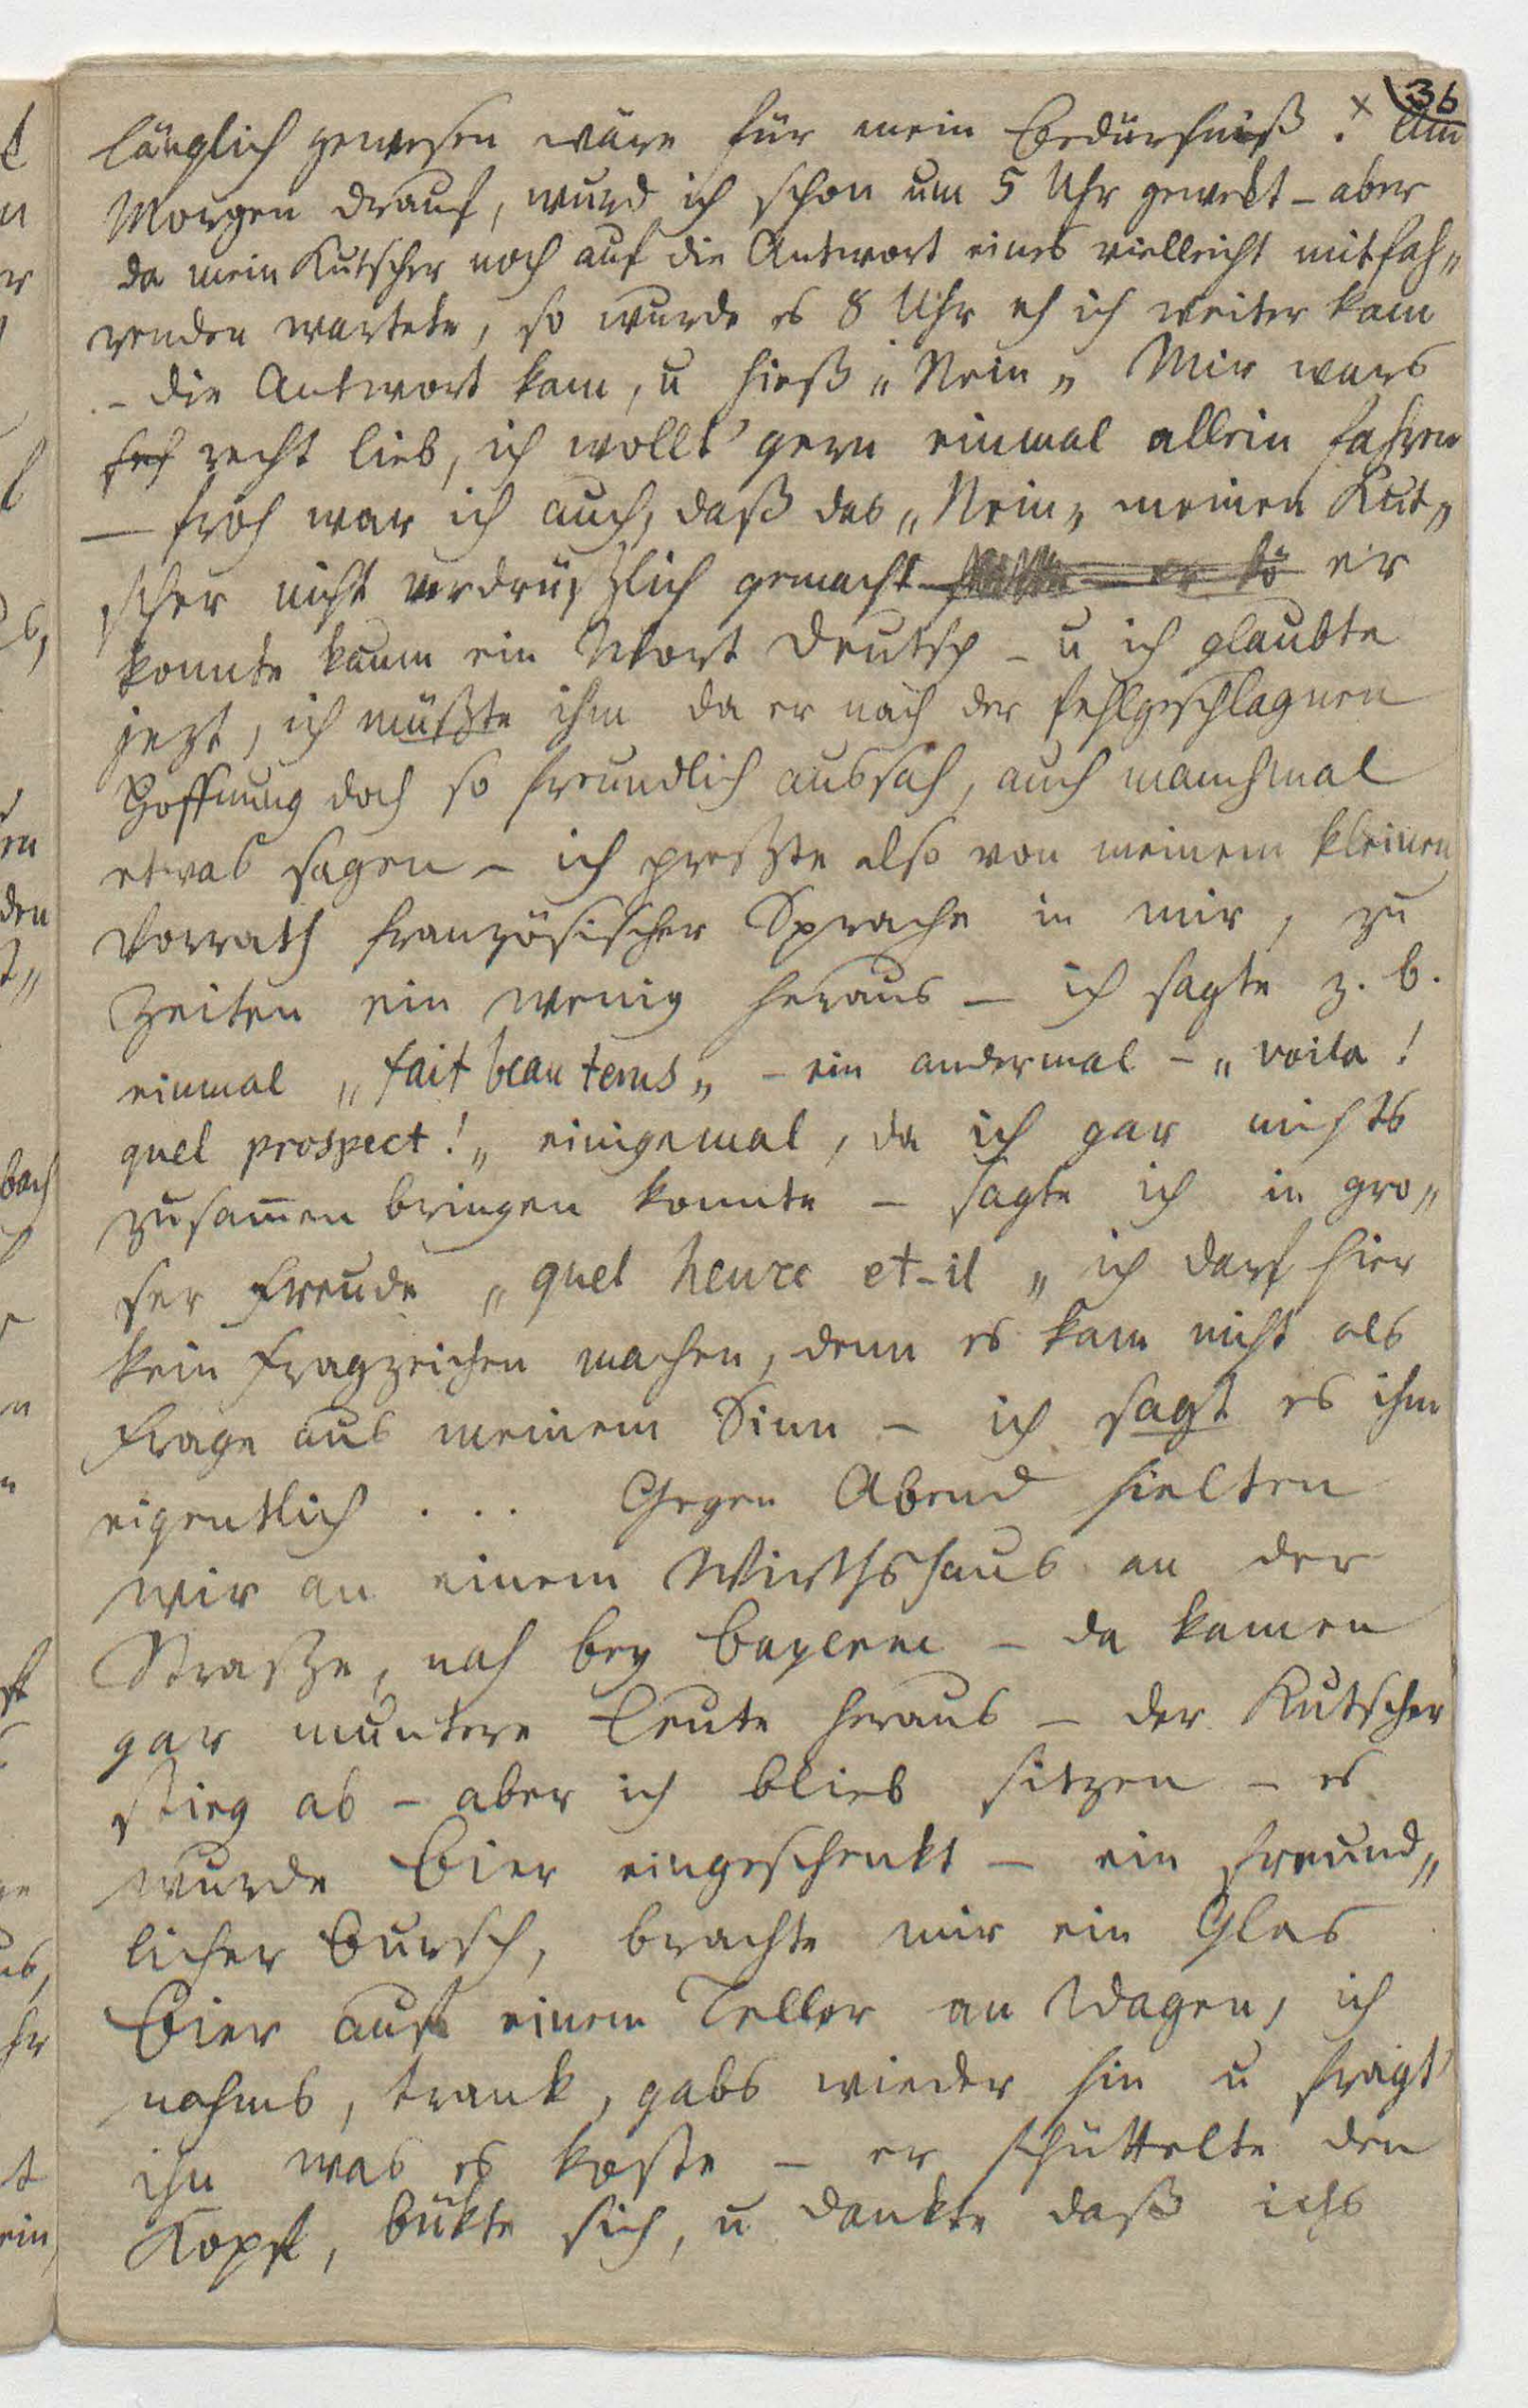 36
länglich gewesen wäre für mein Bedürfniß. × Am
Morgen drauf, wurd ich schon um 5 Uhr gewekt – aber
da mein Kutscher noch auf die Antwort eines vielleicht mitfah„
renden wartete, so wurde es 8 Uhr eh ich weiter kam
– die Antwort kam, u hieß „Nein„ Mir wars
recht lieb, ich wollt' gern einmal allein fahren
— froh war ich auch, daß das „Nein„ meinen Kut„
scher nicht verdrüßlich gemacht er
konnte kaum ein Wort Deutsch – u ich glaubte
jezt, ich müßte ihm da er nach der fehlgeschlagnen
Hoffnung doch so freundlich aussah, auch manchmal
etwas sagen – ich preßte also von meinem kleinen
Vorrath französischer Sprache in mir, zu
Zeiten ein wenig heraus – ich sagte z. b.
einmal „fait beau tems„ – ein andermal – „voila!
quel prospect!„ einigemal, da ich gar nichts
zusam̄en bringen konnte – sagte ich in gro„
ser Freude „quel heure et-il„ ich darf hier
kein Fragzeichen machen, denn es kam nicht als
Frage aus meinem Sinn – ich sagt es ihm
eigentlich . . . Gegen Abend hielten
wir an einem Wirthshaus an der
Straße, nah bey Bayerne – da kamen
gar muntere Leute heraus – der Kutscher
stieg ab – aber ich blieb sitzen – es
wurde Bier eingeschenkt – ein freund„
licher Bursch, brachte mir ein Glas
Bier auf einem Teller an Wagen, ich
nahms, trank, gabs wieder hin u fragt'
ihn was es koste – er schüttelte den
Kopf, bükte sich, u dankte daß ichs